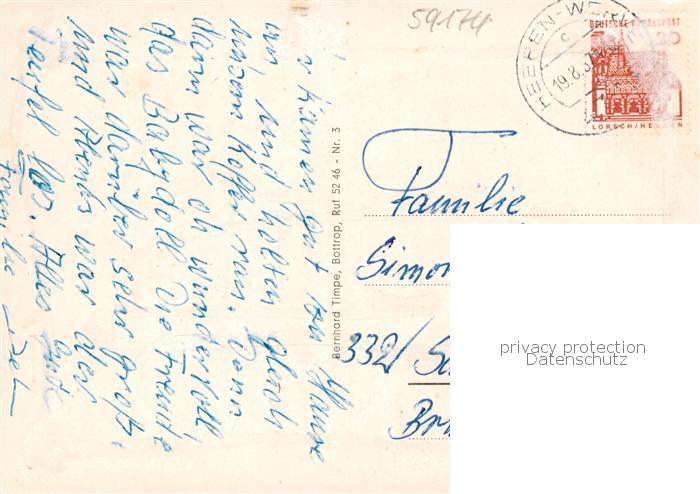 59174
HEEREN-WER
19.8.
DEUTSCHE BUNDESPOST
20
LORSCH/HESSEN
kamen gut von Hause
an und holten gleich
unsern Koffer rein. Dann
dann war oh wundervoll,
das Babydoll die Freude
war darüber sehr groß.
und Abends war der
Teufel los. Alles gute
Familie
Bernhard Timpe, Bottrop, Ruf 52 46 - Nr. 3
Familie
Simon
332/ Sa
Br
privacy protection
Datenschutz